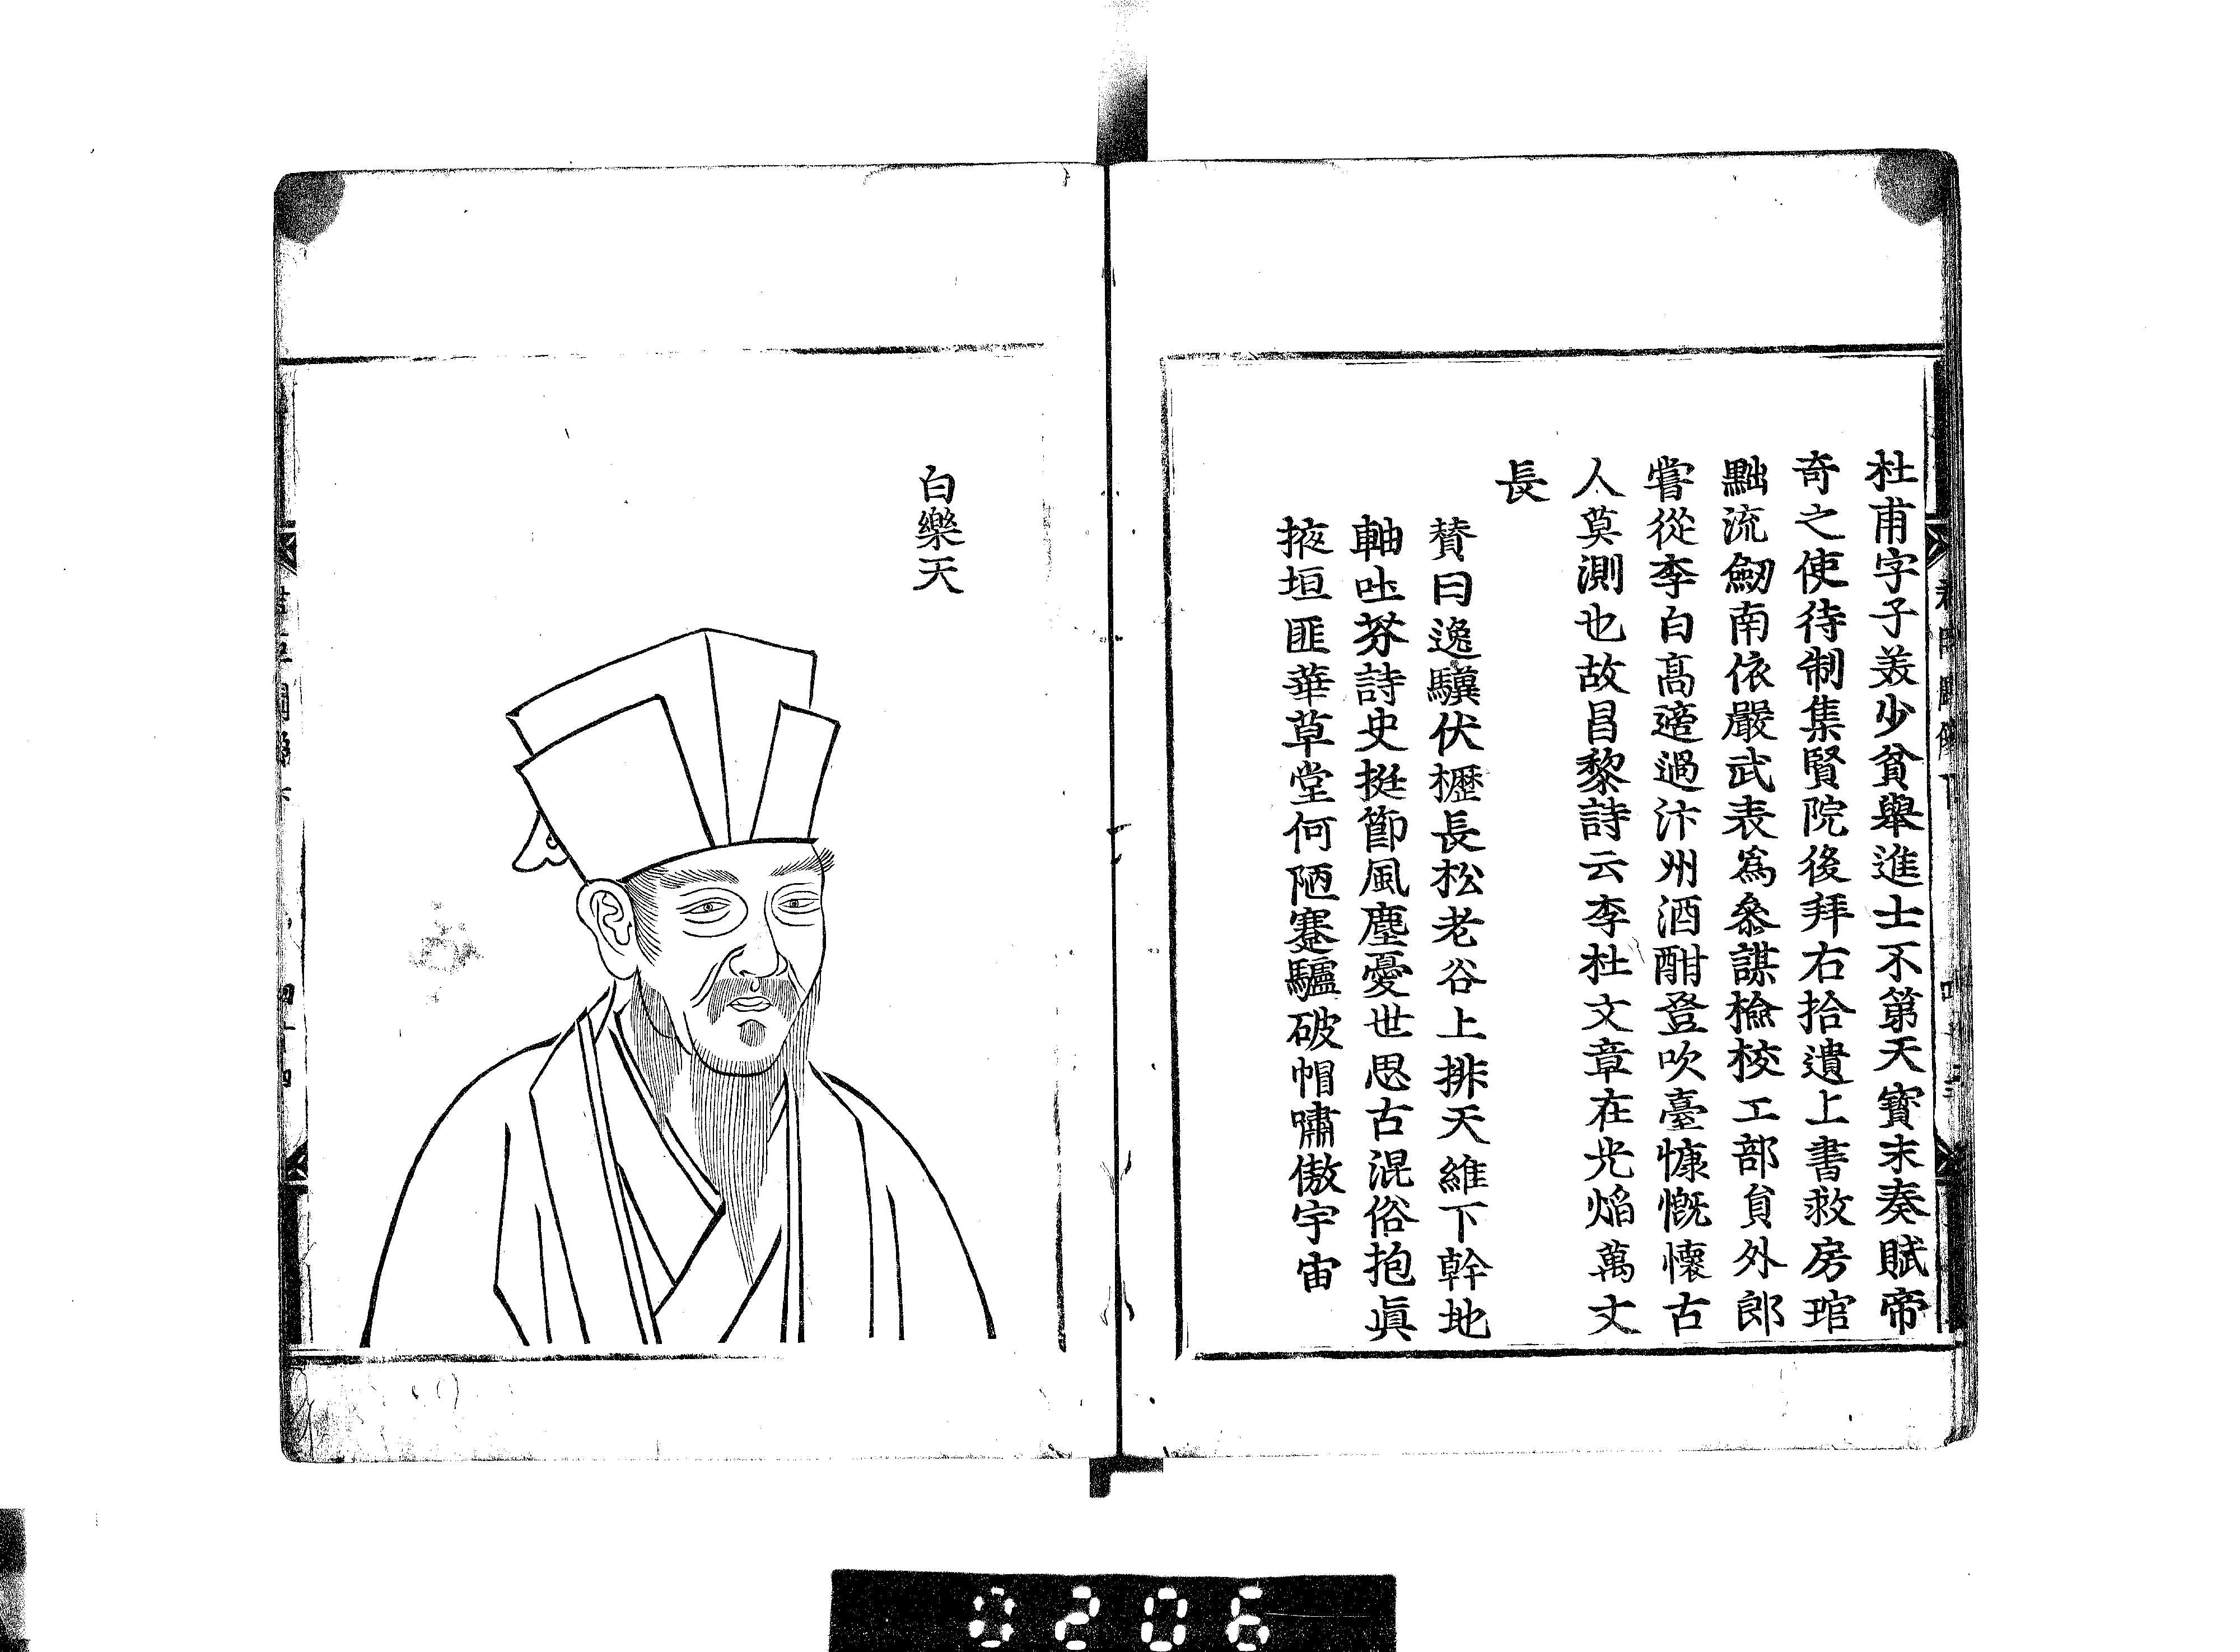 杜甫字子美少貧舉進士不第天寶末奏賦帝
奇之使待制集賢院後拜右拾遺上書救房琯
黜流劒南依嚴武表爲叅謀檢校工部貟外郎
嘗從李白高適過汴州酒酣登吹臺慷慨懷古
人莫測也故昌黎詩云李杜文章在光焰萬丈
長
賛曰逸驥伏櫪長松老谷上排天維下幹地
軸吐芬詩史挺節風塵憂世思古混俗抱眞
掖垣匪華草堂何陋蹇驢破帽嘯傲宇宙
白樂天
0206